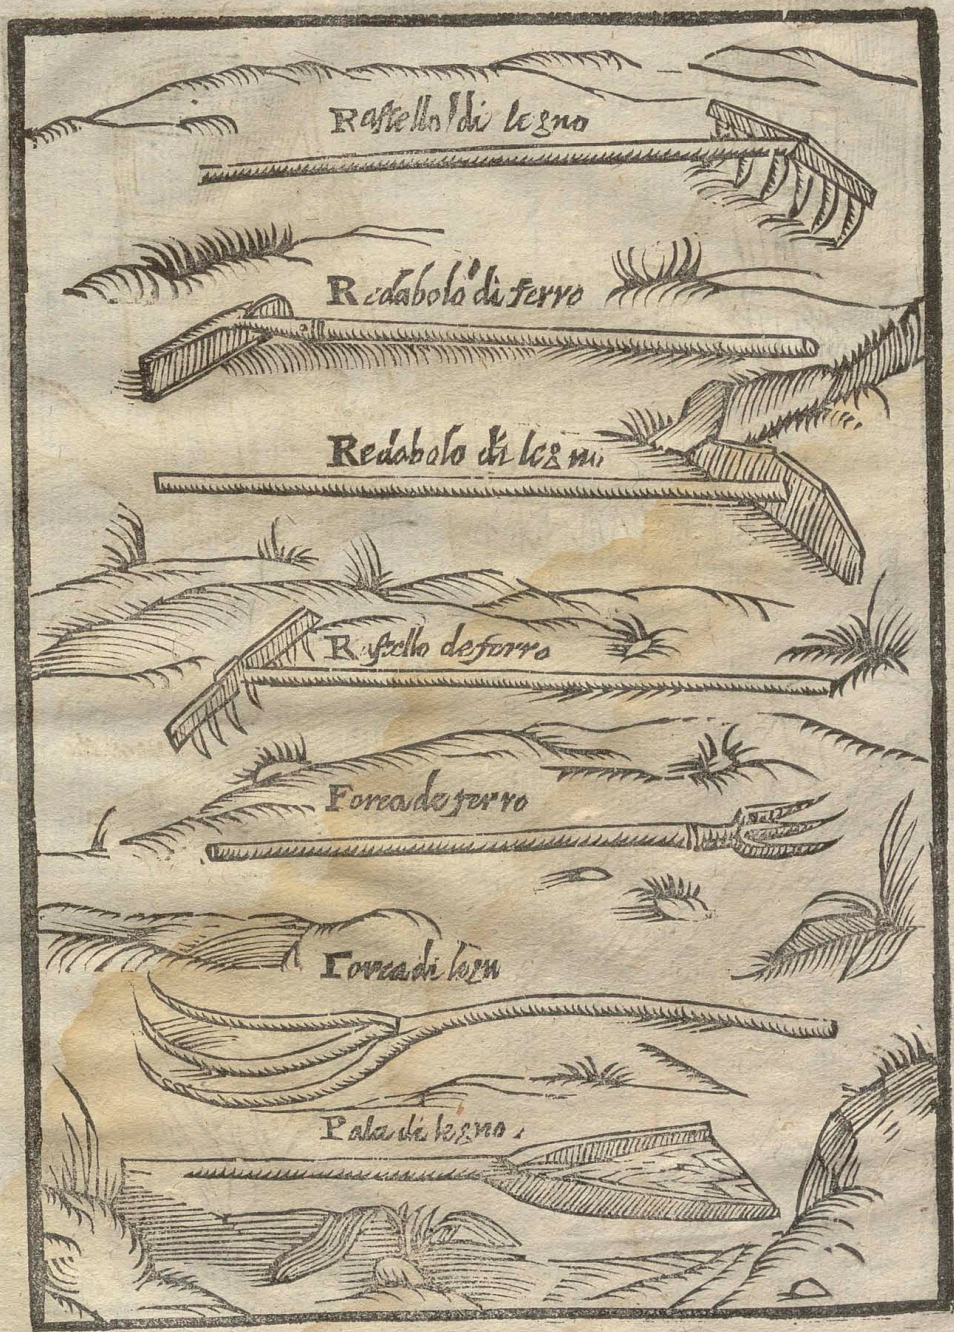 Rastello di legno
Redabolo di ferro
Redabolo di legno
Rastello de ferro
Forca de ferro
Forca di legn
Pala di legno.